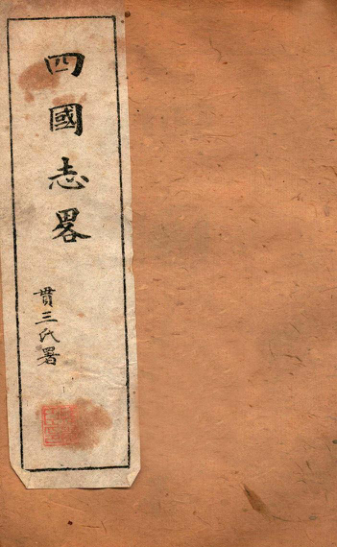 四國志畧
貫三氏署